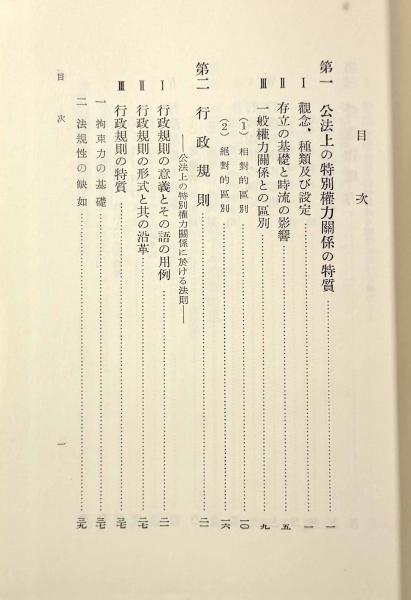 目次
第一 公法上の特別權力關係の特質……一
Ⅰ 觀念、種類及び設定……一
Ⅱ 存立の基礎と時流の影響……五
Ⅲ 一般權力關係との區別……九
(1) 相對的區別……一〇
(2) 絕對的區別……一六
第二 行政規則……二一
——公法上の特別權力關係に於ける法則——
Ⅰ 行政規則の意義とその語の用例……二一
Ⅱ 行政規則の形式と其の沿革……二七
Ⅲ 行政規則の特質……三七
一 拘束力の基礎……三七
二 法規性の缺如……三九
目次 一